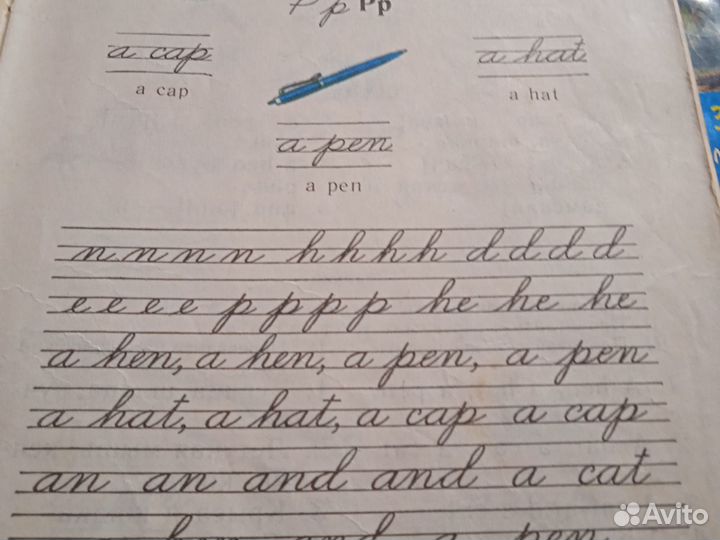 Pp Pp
a cap
a hat
a cap
a hat
a pen
a pen
n n n n h h h h d d d d
e e e e p p p p he he he
a hen, a hen, a pen, a pen
a hat, a hat, a cap a cap
an an and and a cat
a hen and a pen
Avito